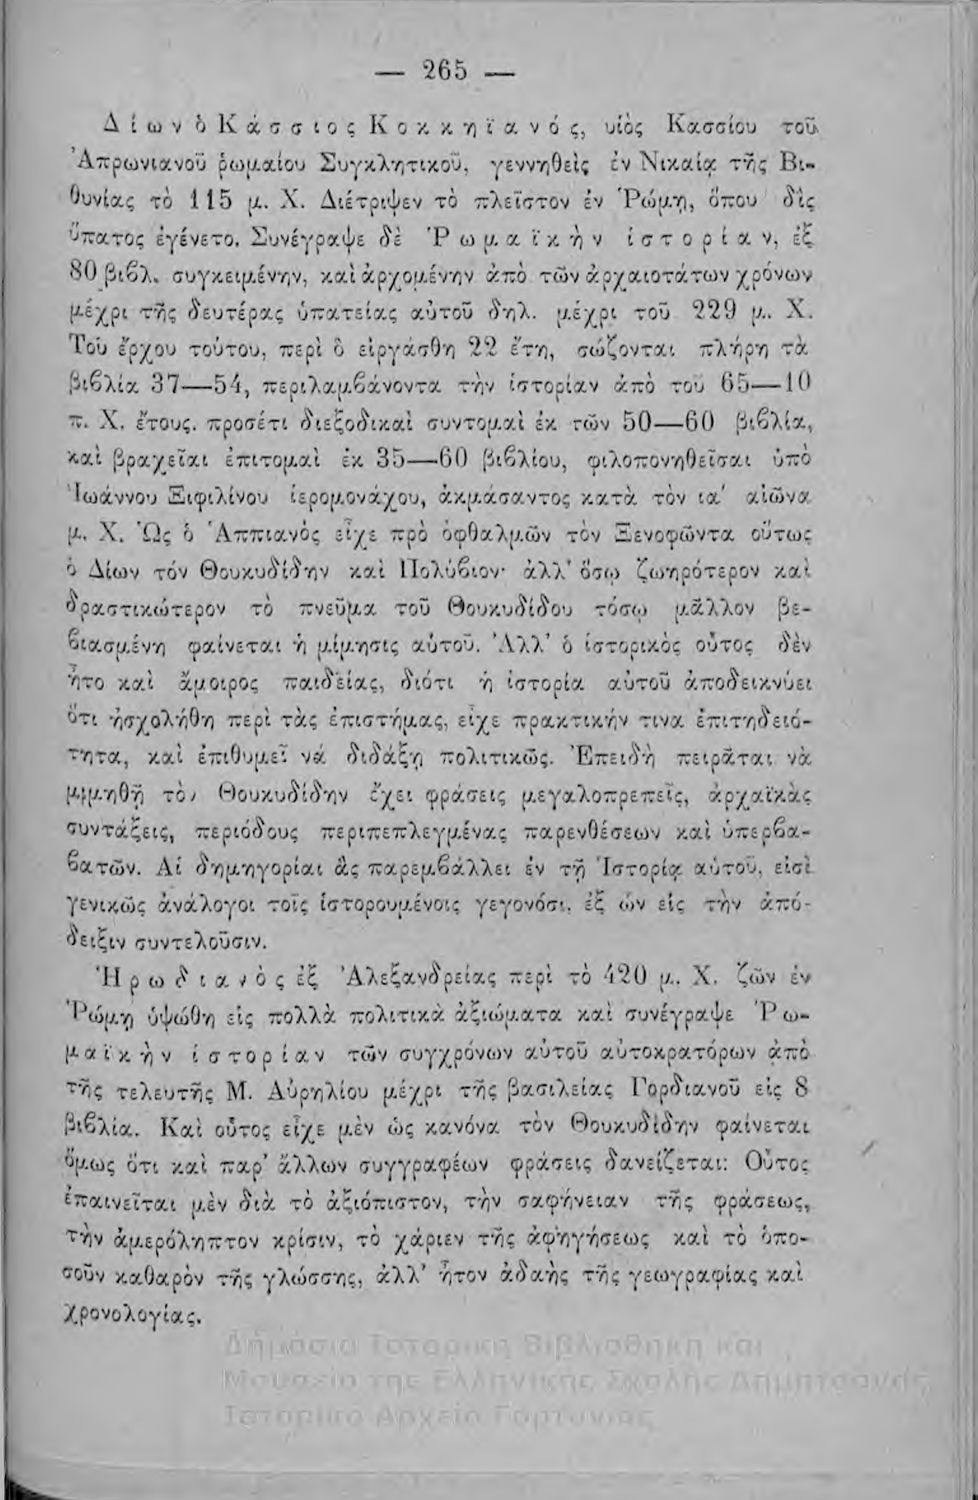 — 265 —
Δίων ὁ Κάσσιος Κοκκηϊανός, υἱὸς Κασσίου τοῦ
Ἀπρωνιανοῦ ῥωμαίου Συγκλητικοῦ, γεννηθεὶς ἐν Νικαίᾳ τῆς Βι-
θυνίας τὸ 115 μ. Χ. Διέτριψεν τὸ πλεῖστον ἐν Ῥώμῃ, ὅπου δὶς
ὕπατος ἐγένετο. Συνέγραψε δὲ Ῥωμαϊκὴν ἱστορίαν, ἐξ
80 βιβλ. συγκειμένην, καὶ ἀρχομένην ἀπὸ τῶν ἀρχαιοτάτων χρόνων
μέχρι τῆς δευτέρας ὑπατείας αὐτοῦ δηλ. μέχρι τοῦ 229 μ. Χ.
Τοῦ ἔργου τούτου, περὶ ὃ εἰργάσθη 22 ἔτη, σώζονται πλήρη τὰ
βιβλία 37—54, περιλαμβάνοντα τὴν ἱστορίαν ἀπὸ τοῦ 65—10
π. Χ. ἔτους. προσέτι διεξοδικαὶ συντομαὶ ἐκ τῶν 50—60 βιβλία,
καὶ βραχεῖαι ἐπιτομαὶ ἐκ 35—60 βιβλίου, φιλοπονηθεῖσαι ὑπὸ
Ἰωάννου Ξιφιλίνου ἱερομονάχου, ἀκμάσαντος κατὰ τὸν ια' αἰῶνα
μ. Χ. Ὡς ὁ Ἀππιανὸς εἶχε πρὸ ὀφθαλμῶν τὸν Ξενοφῶντα οὕτως
ὁ Δίων τόν Θουκυδίδην καὶ Πολύβιον· ἀλλ' ὅσῳ ζωηρότερον καὶ
δραστικώτερον τὸ πνεῦμα τοῦ Θουκυδίδου τόσῳ μᾶλλον βε-
βιασμένη φαίνεται ἡ μίμησις αὐτοῦ. Ἀλλ' ὁ ἱστορικὸς οὗτος δὲν
ἦτο καὶ ἄμοιρος παιδείας, διότι ἡ ἱστορία αὐτοῦ ἀποδεικνύει
ὅτι ἠσχολήθη περὶ τὰς ἐπιστήμας, εἶχε πρακτικήν τινα ἐπιτηδειό-
τητα, καὶ ἐπιθυμεῖ νὰ διδάξῃ πολιτικῶς. Ἐπειδὴ πειρᾶται νὰ
μιμηθῇ τὸν Θουκυδίδην ἔχει φράσεις μεγαλοπρεπεῖς, ἀρχαϊκὰς
συντάξεις, περιόδους περιπεπλεγμένας παρενθέσεων καὶ ὑπερβα-
βατῶν. Αἱ δημηγορίαι ἃς παρεμβάλλει ἐν τῇ Ἱστορίᾳ αὐτοῦ, εἰσὶ
γενικῶς ἀνάλογοι τοῖς ἱστορουμένοις γεγονόσι, ἐξ ὧν εἰς τὴν ἀπό-
δειξιν συντελοῦσιν.
Ἡρωδιανὸς ἐξ Ἀλεξανδρείας περὶ τὸ 420 μ. Χ. ζῶν ἐν
Ῥώμῃ ὑψώθη εἰς πολλὰ πολιτικὰ ἀξιώματα καὶ συνέγραψε Ῥω-
μαϊκὴν ἱστορίαν τῶν συγχρόνων αὐτοῦ αὐτοκρατόρων ἀπὸ
τῆς τελευτῆς Μ. Αὐρηλίου μέχρι τῆς βασιλείας Γορδιανοῦ εἰς 8
βιβλία. Καὶ οὗτος εἶχε μὲν ὡς κανόνα τὸν Θουκυδίδην φαίνεται
ὅμως ὅτι καὶ παρ' ἄλλων συγγραφέων φράσεις δανείζεται: Οὗτος
ἐπαινεῖται μὲν διὰ τὸ ἀξιόπιστον, τὴν σαφήνειαν τῆς φράσεως,
τὴν ἀμερόληπτον κρίσιν, τὸ χάριεν τῆς ἀφηγήσεως καὶ τὸ ὁπο-
σοῦν καθαρὸν τῆς γλώσσης, ἀλλ' ἦτον ἀδαὴς τῆς γεωγραφίας καὶ
χρονολογίας.
Δημόσια Ιστορική Βιβλιοθήκη και
Μουσείο της Ελληνικής Σχολής Δημητσάνας
Ιστορικό Αρχείο Γορτυνίας